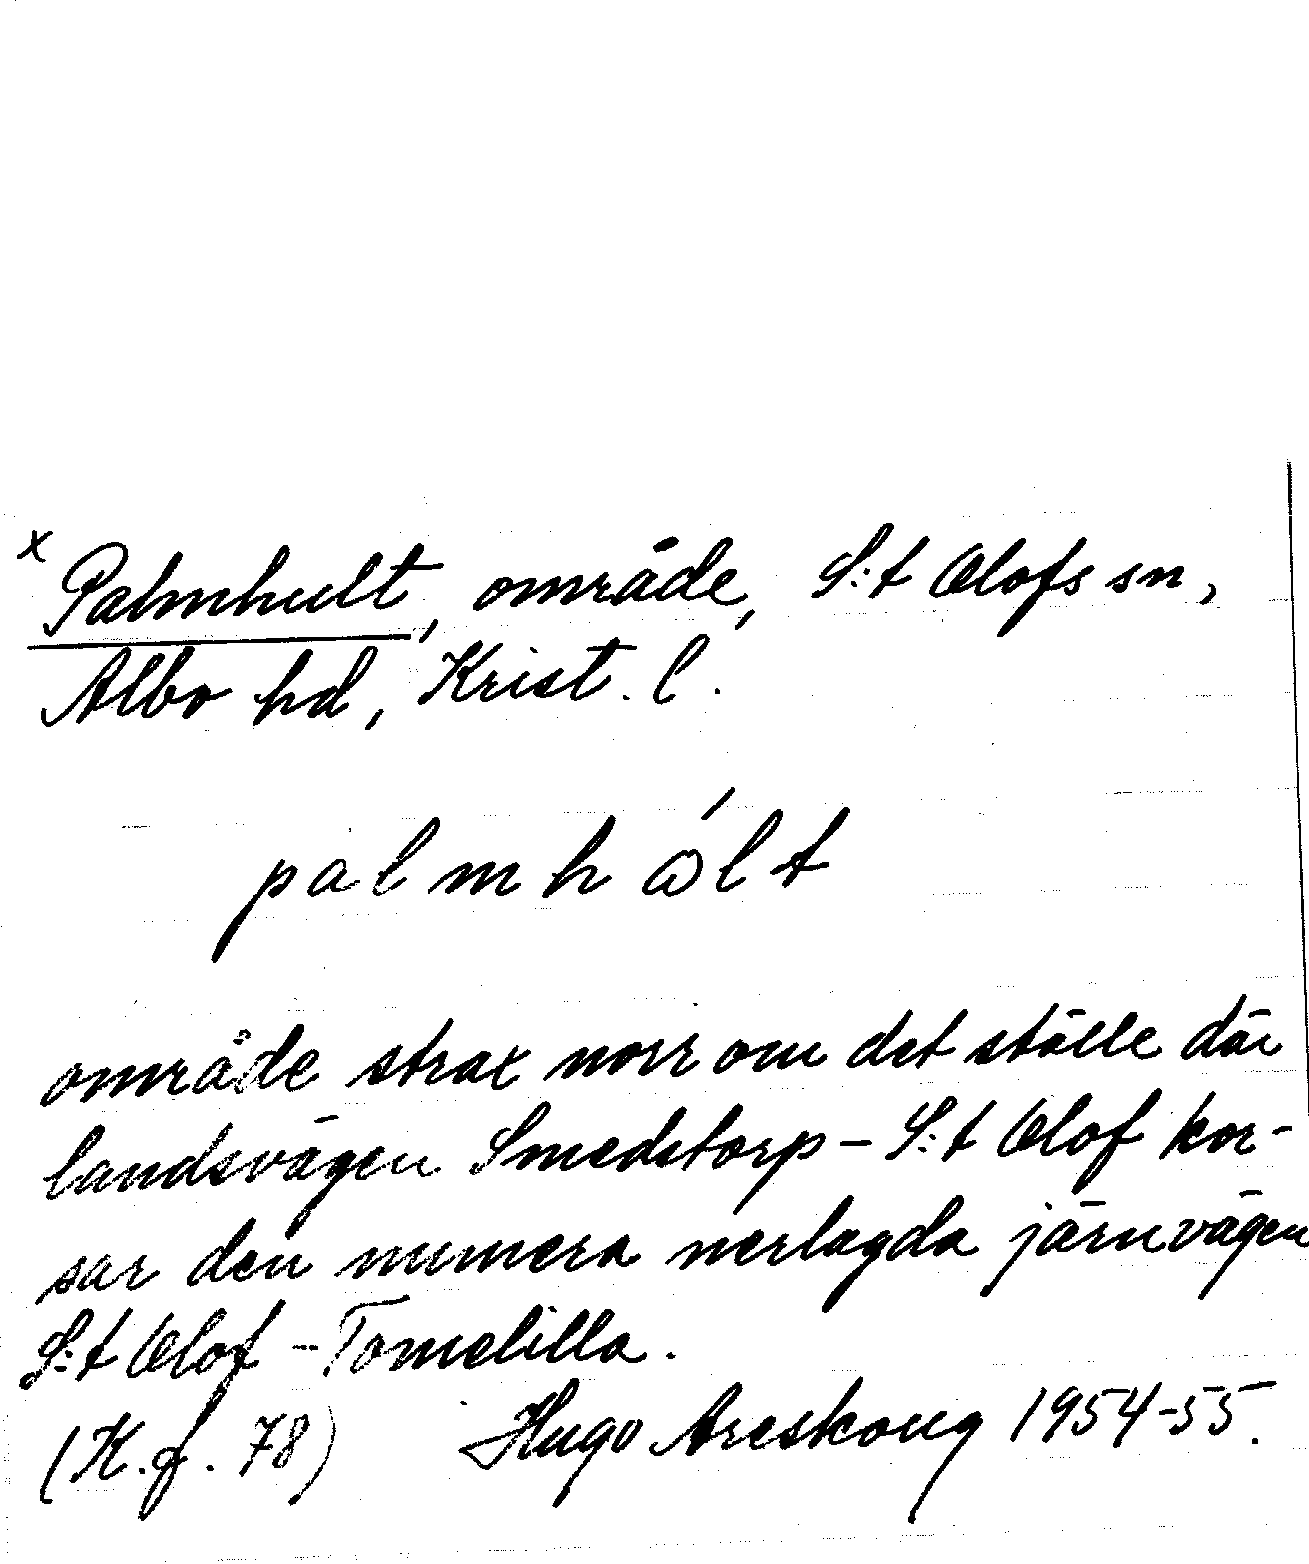 x Palmhult, område, S:t Olofs sn,
Albo hd, Krist. l.
palmhål t
område strax norr om det ställe där
landsvägen Smedstorp - S:t Olof kor-
sar den numera nerlagda järnvägen
S:t Olof - Tomelilla.
(K.f. 78) Hugo Areskoug 1954-55.